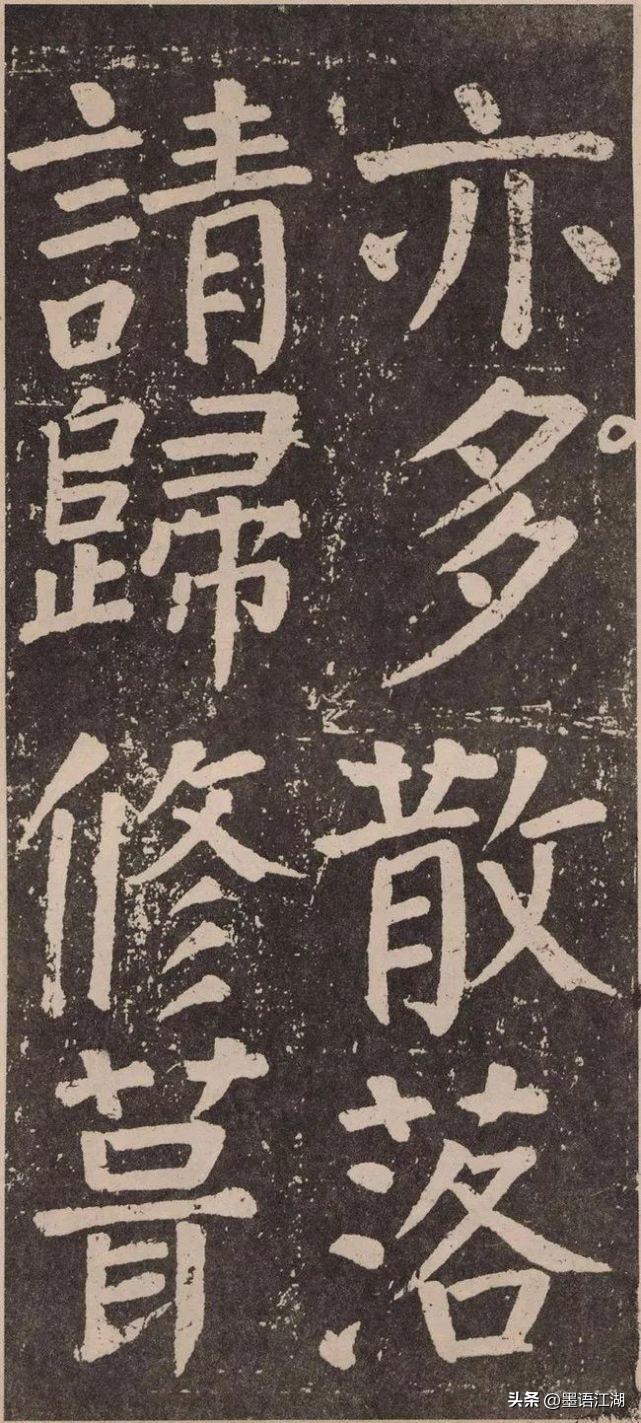 亦多散落
請歸修葺
头条 @墨语江湖